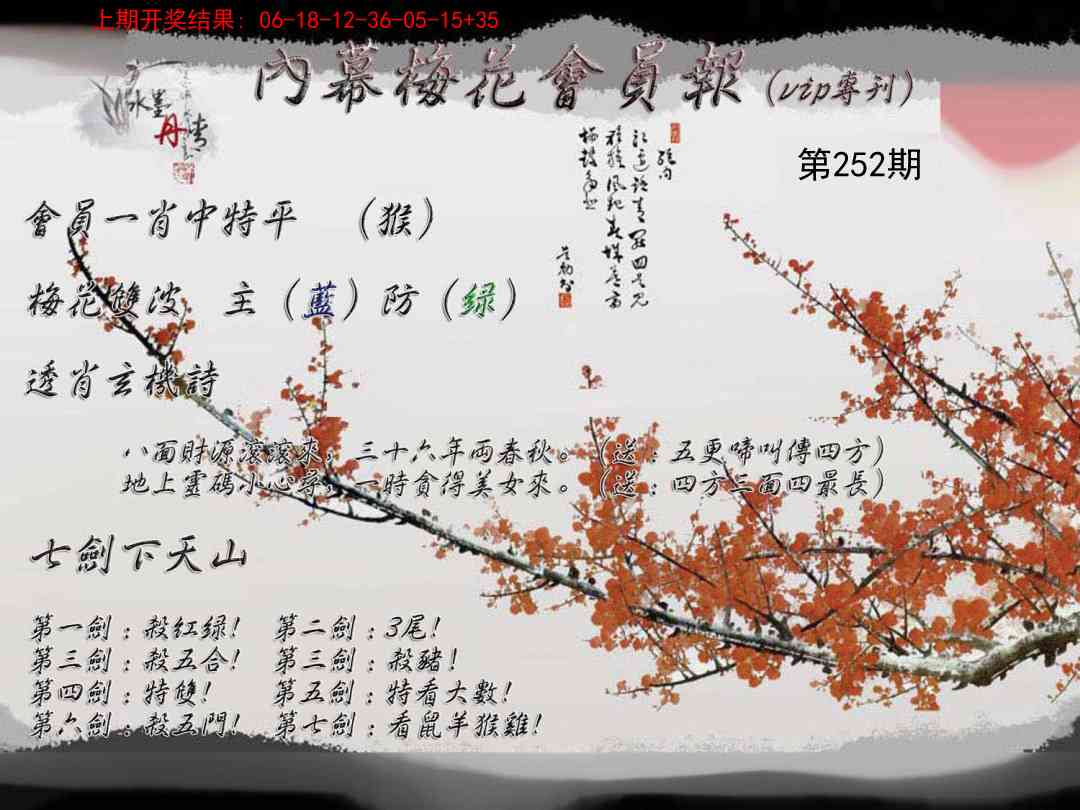 上期开奖结果: 06-18-12-36-05-15+35
內幕梅花會員報(vip專刊)
水墨丹情
第252期
會員一肖中特平 （猴）
梅花雙波 主（藍）防（绿）
透肖玄機詩
八面財源滾滾來，三十六年両春秋。（送：五更啼叫傳四方）
地上靈碼小心尋，一時貪得美女來。（送：四方三面四最長）
七劍下天山
第一劍：殺紅绿! 第二劍：3尾!
第三劍：殺五合! 第三劍：殺豬!
第四劍：特雙! 第五劍：特看大數!
第六劍：殺五門! 第七劍：看鼠羊猴雞!